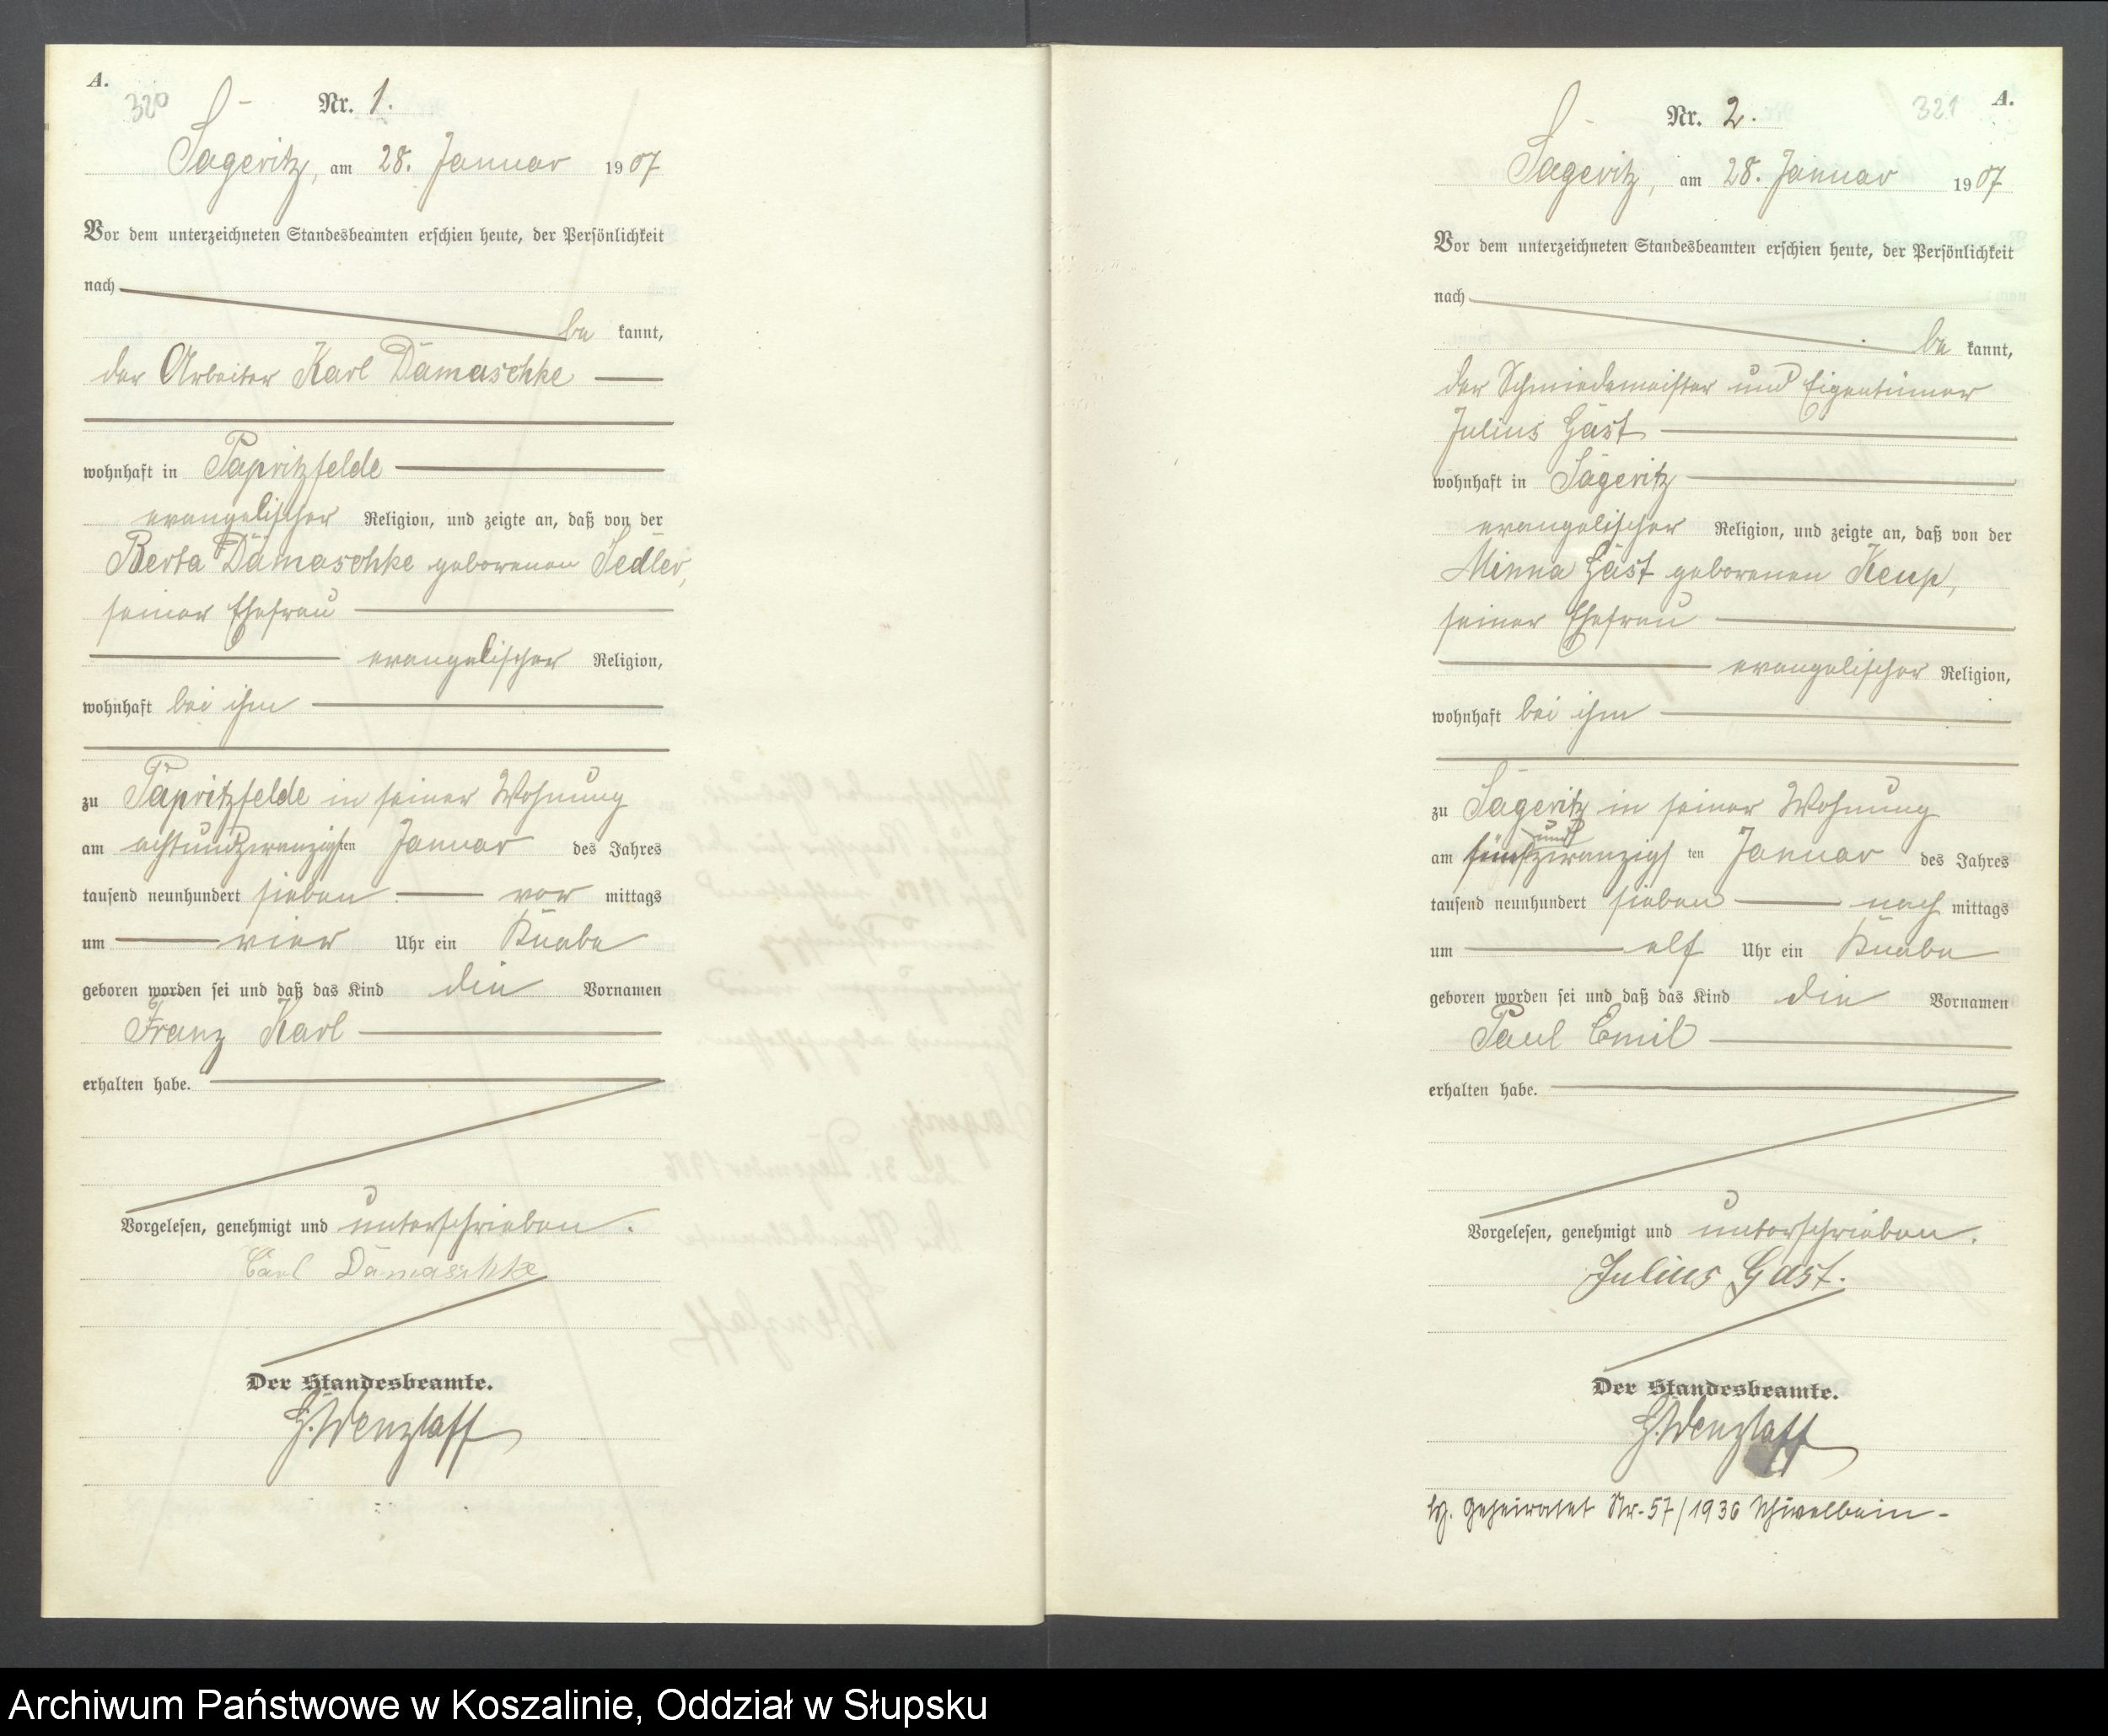 A.
320
Nr. 1.
Sageritz, am 28. Januar 1907
Vor dem unterzeichneten Standesbeamten erschien heute, der Persönlichkeit
nach
be kannt,
der Arbeiter Karl Damaschke
wohnhaft in Papritzfelde
evangelischer Religion, und zeigte an, daß von der
Berta Damaschke geborenen Sedler,
seiner Ehefrau
evangelischer Religion,
wohnhaft bei ihm
zu Papritzfelde in seiner Wohnung
am achtundzwanzigsten Januar des Jahres
tausend neunhundert sieben vor mittags
um vier Uhr ein Knabe
geboren worden sei und daß das Kind die Vornamen
Franz Karl
erhalten habe.
Vorgelesen, genehmigt und unterschrieben.
Carl Damaschke
Der Standesbeamte.
G. Wenzlaff
321
A.
Nr. 2.
Sageritz, am 28. Januar 1907
Vor dem unterzeichneten Standesbeamten erschien heute, der Persönlichkeit
nach
be kannt,
der Schmiedemeister und Eigentümer
Julius Gast
wohnhaft in Sageritz
evangelischer Religion, und zeigte an, daß von der
Minna Gast geborenen Kemp,
seiner Ehefrau
evangelischer Religion,
wohnhaft bei ihm
zu Sageritz in seiner Wohnung
und
am fünfzwanzigsten Januar des Jahres
tausend neunhundert sieben nach mittags
um elf Uhr ein Knabe
geboren worden sei und daß das Kind die Vornamen
Paul Emil
erhalten habe.
Vorgelesen, genehmigt und unterschrieben.
Julius Gast.
Der Standesbeamte.
G. Wenzlaff
geheiratet Nr. 57/1936 Schivelbein -
Archiwum Państwowe w Koszalinie, Oddział w Słupsku